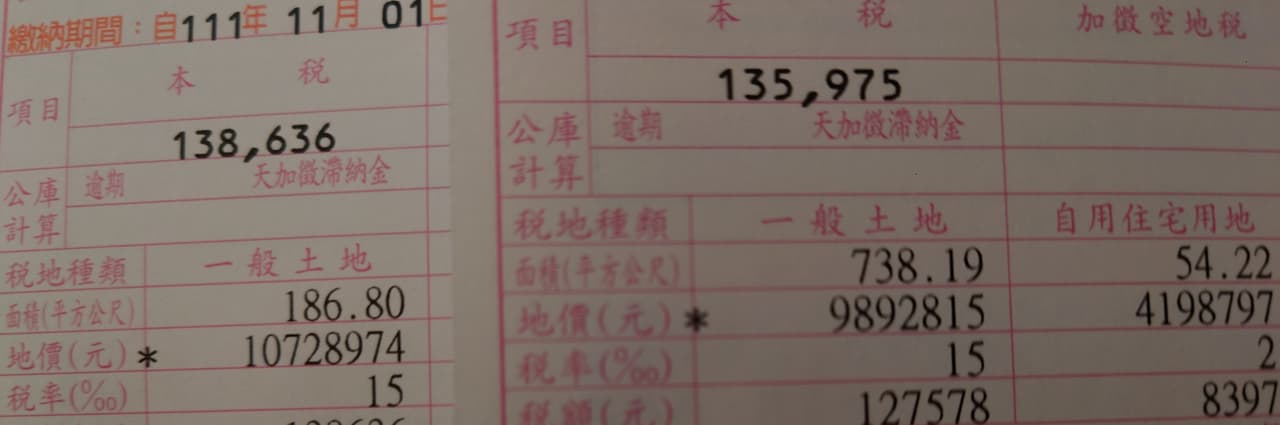 繳納期間：自111年 11月 01日
項目 本 稅
138,636
公庫計算 逾期 天加徵滯納金
稅地種類 一般土地
面積(平方公尺) 186.80
地價(元) * 10728974
稅率(‰) 15
項目 本 稅 加徵空地稅
135,975
公庫計算 逾期 天加徵滯納金
稅地種類 一般土地 自用住宅用地
面積(平方公尺) 738.19 54.22
地價(元) * 9892815 4198797
稅率(‰) 15 2
稅額(元) 127578 8397